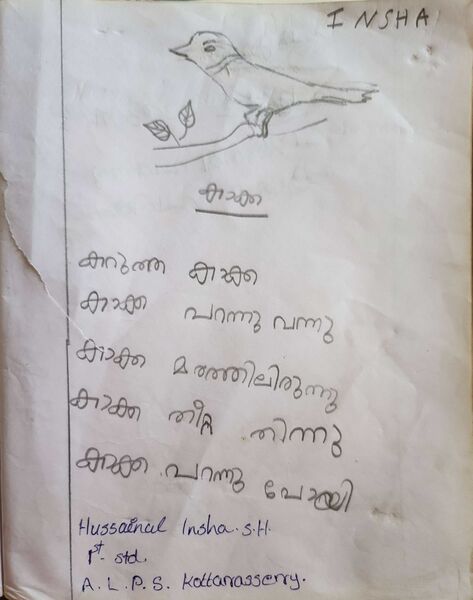 INSHA
കാക്ക
കറുത്ത കാക്ക
കാക്ക പറന്നു വന്നു
കാക്ക മരത്തിലിരുന്നു
കാക്ക തീറ്റ തിന്നു
കാക്ക പറന്നു പോയി
Hussainul Insha.S.H.
1st std.
A.L.P.S. Kottanasserry.